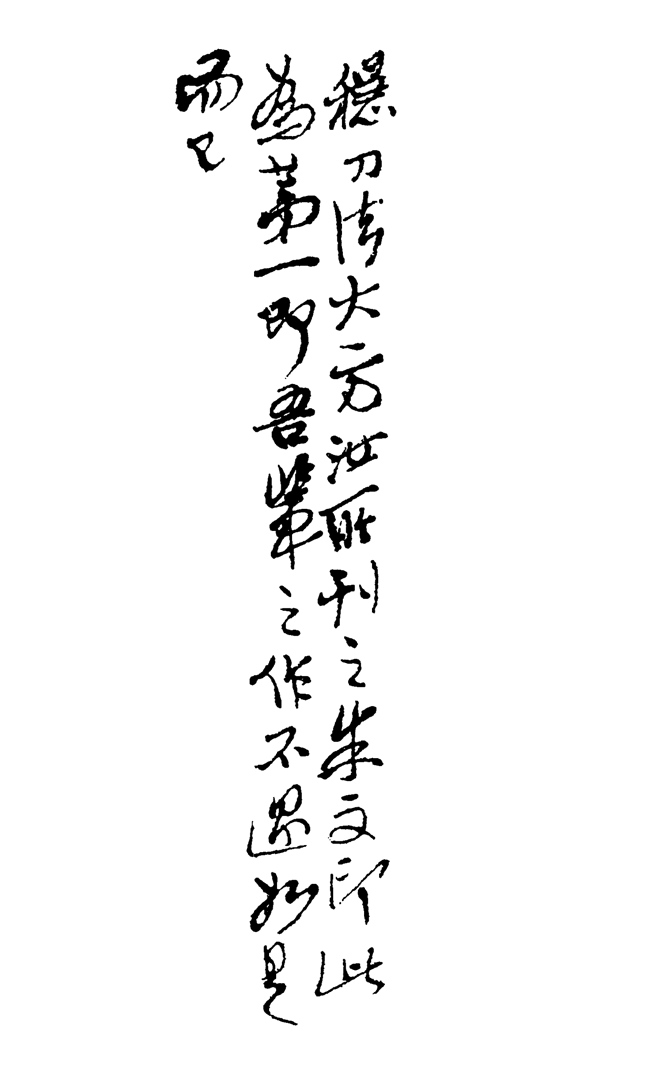 穩刀法大方汝所刊之朱文印此
為第一即吾輩之作不過如是
而已